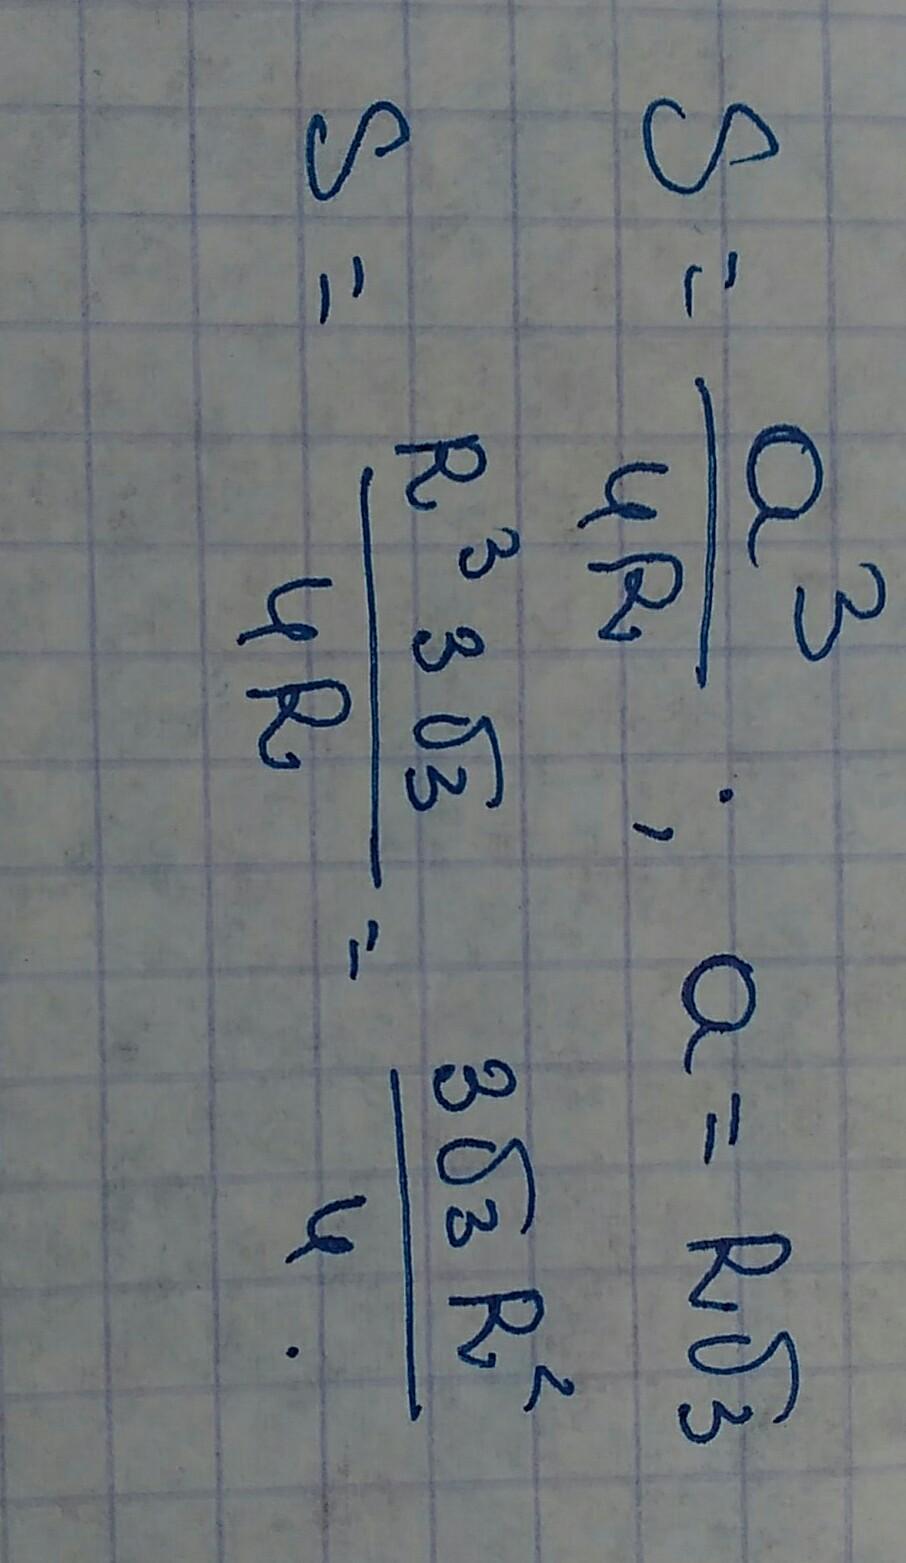 S = a³/4R ; a = R√3
S = R³3√3/4R = 3√3R²/4 .